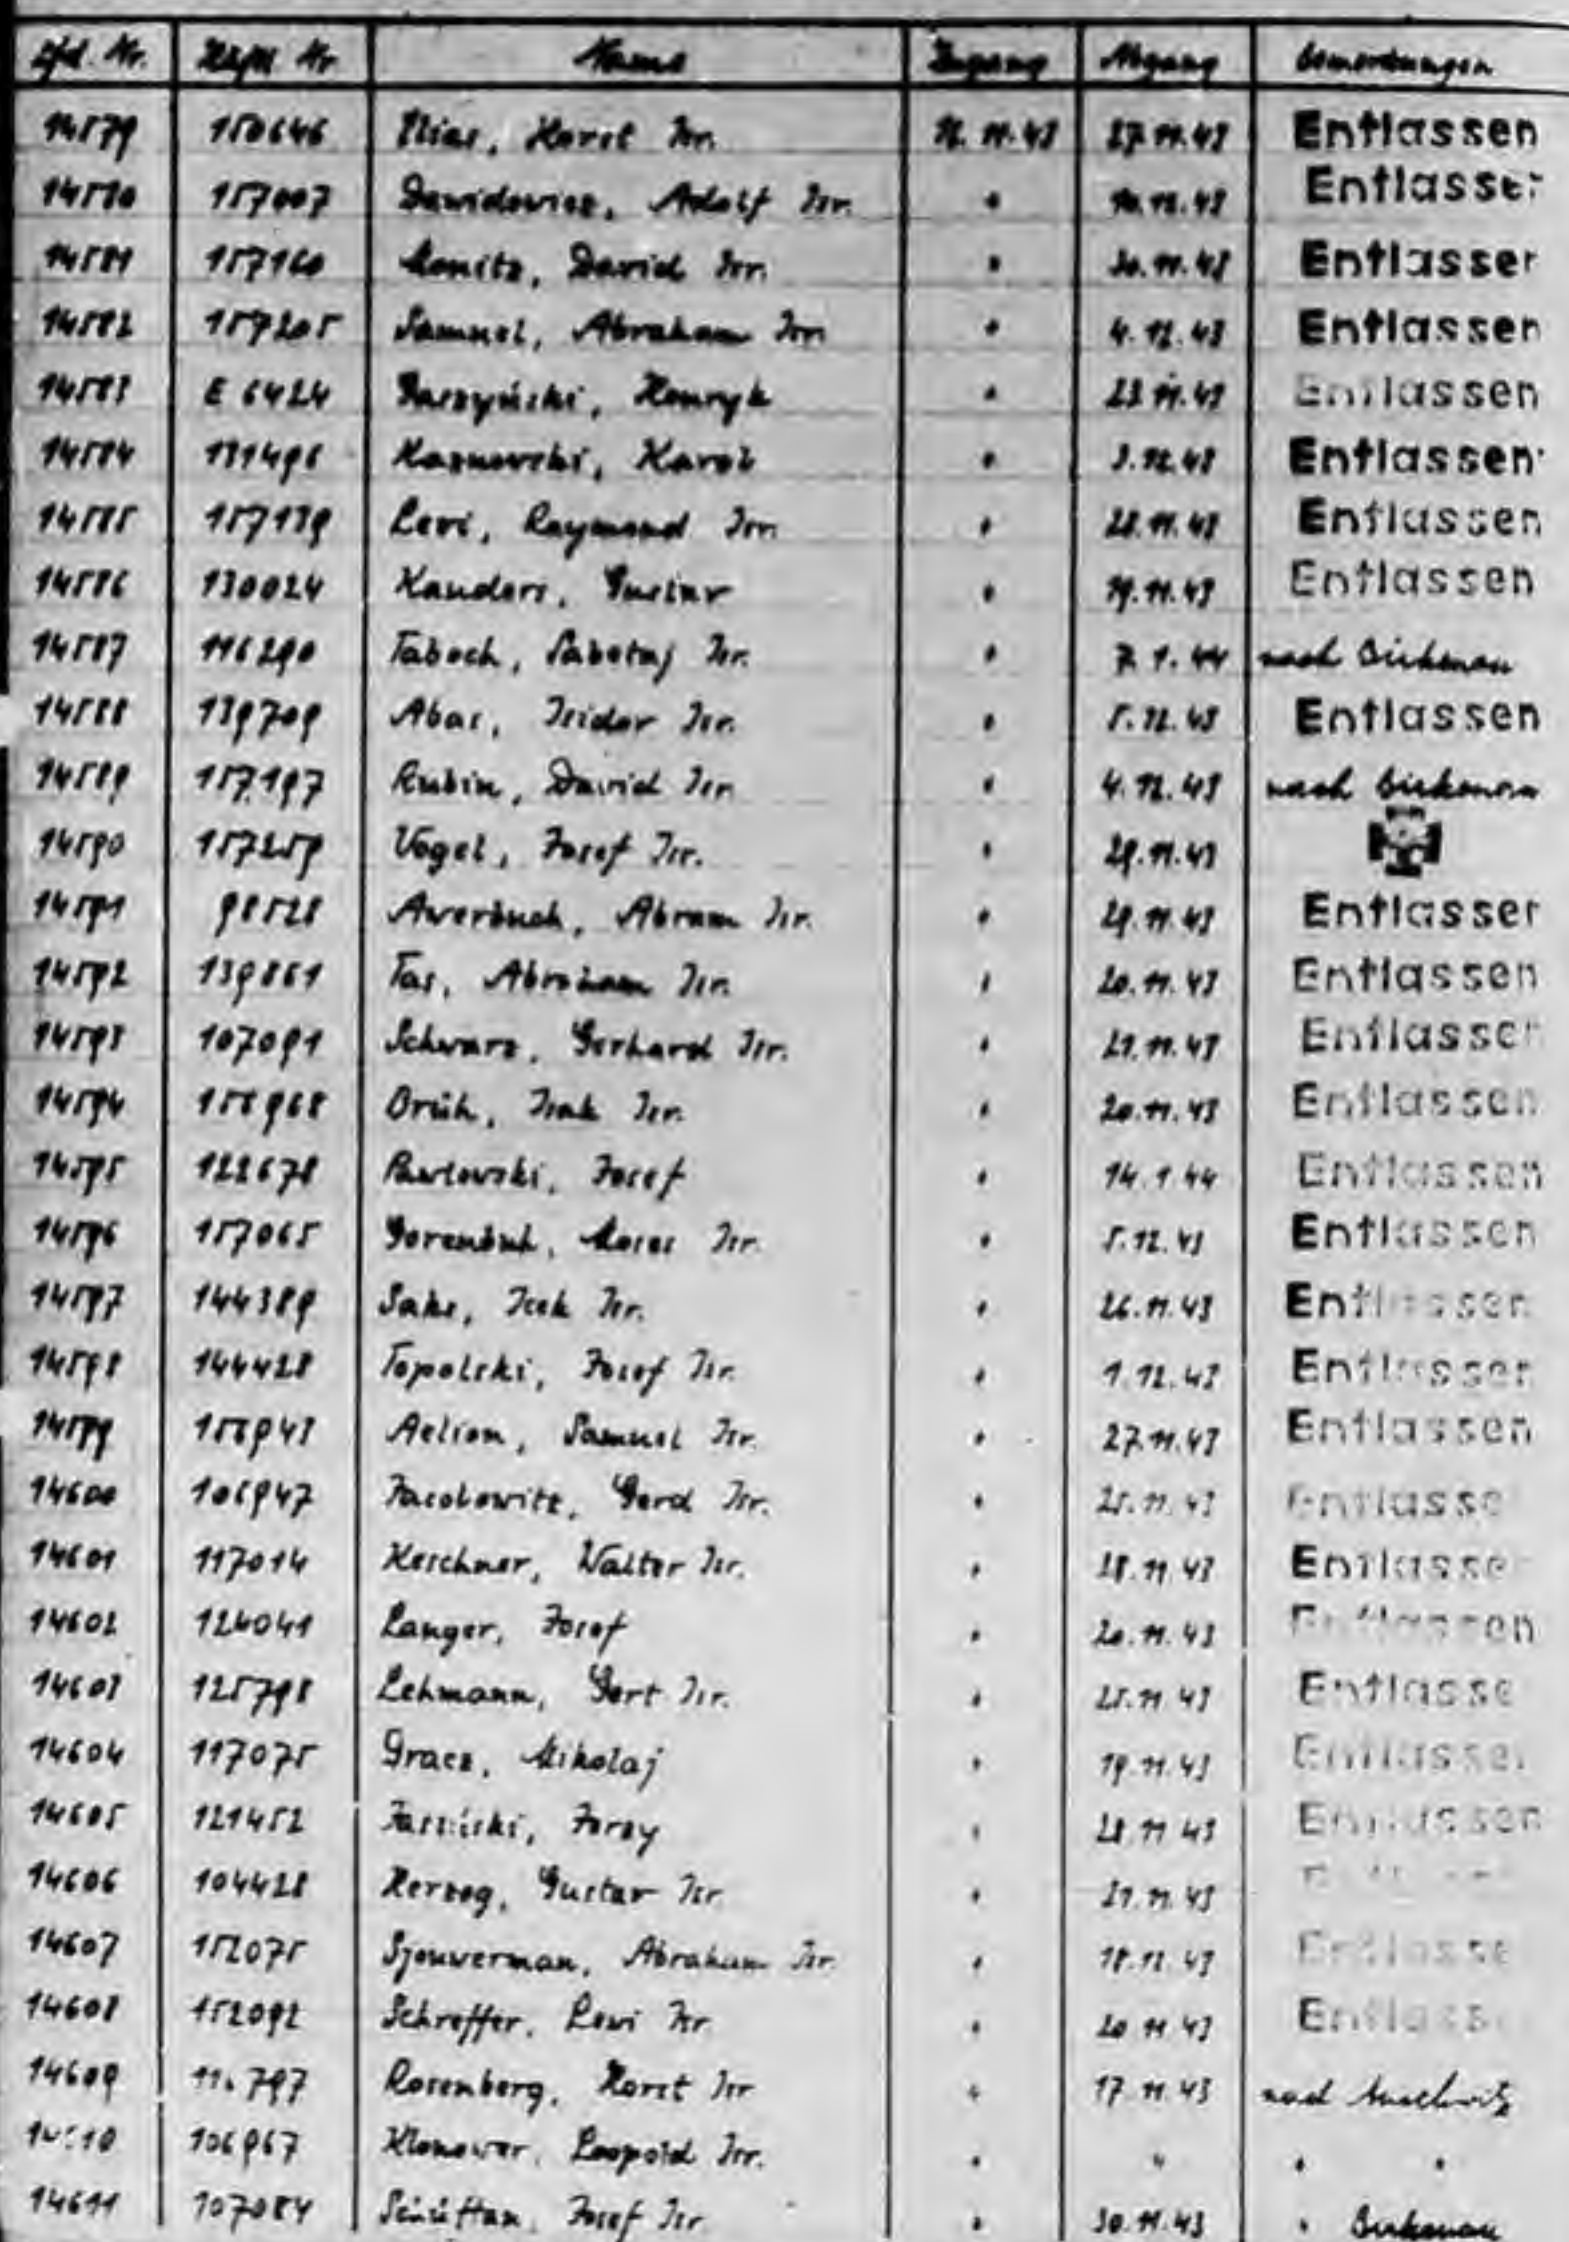 Lfd. Nr. Häftl. Nr. Name Zugang Abgang Bemerkungen
14579 150646 Elias, Horst Isr. 27.11.43 Entlassen
14580 157007 Dawidowicz, Adolf Isr. " Entlassen
14581 157160 Monitz, David Isr. " 30.11.43 Entlassen
14582 157205 Samuel, Abraham Isr. " 4.12.43 Entlassen
14583 E 6424 Henryk " 23.11.43 Entlassen
14584 131498 Kaznowski, Karol " 3.12.43 Entlassen
14585 157139 Levi, Raymond Isr. " 28.11.43 Entlassen
14586 130024 Kanders, Gustav " 19.11.43 Entlassen
14587 116290 Taboch, Sabetaj Isr. " 7.1.44 nach Birkenau
14588 139709 Abas, Isidor Isr. " 5.12.43 Entlassen
14589 157197 Rubin, David Isr. " 4.12.43 nach Birkenau
14590 157259 Vogel, Josef Isr. " 29.11.43
14591 98528 Awerbuch, Abram Isr. " 29.11.43 Entlassen
14592 139861 Tas, Abraham Isr. " 20.11.43 Entlassen
14593 107091 Schwarz, Gerhard Isr. " 21.11.43 Entlassen
14594 156968 Isak Isr. " 20.11.43 Entlassen
14595 122678 Pawlowski, Josef " 14.1.44 Entlassen
14596 157065 Moses Isr. " 5.12.43 Entlassen
14597 144389 Saks, Icek Isr. " 26.11.43 Entlassen
14598 144428 Topolski, Josef Isr. " 1.12.43 Entlassen
14599 156943 Aelion, Samuel Isr. " 27.11.43 Entlassen
14600 106947 Jacobowitz, Gerd Isr. " 25.11.43 Entlassen
14601 117014 Kerschner, Walter Isr. " 28.11.43 Entlassen
14602 124041 Langer, Josef " 20.11.43 Entlassen
14603 125798 Lehmann, Gert Isr. " 25.11.43 Entlassen
14604 117075 Gracz, Mikolaj " 19.11.43 Entlassen
14605 121452 Jerzy " 28.11.43 Entlassen
14606 104428 Herzog, Gustav Isr. " 21.11.43
14607 152075 Sjouwerman, Abraham Isr. " 18.12.43 Entlassen
14608 152092 Schreffer, Levi Isr. " 20.11.43 Entlassen
14609 Rosenberg, Horst Isr. " 17.11.43 nach Auschwitz
14610 106967 Klonower, Leopold Isr. " " " "
14611 107084 Schüftan, Josef Isr. " 30.11.43 " Birkenau